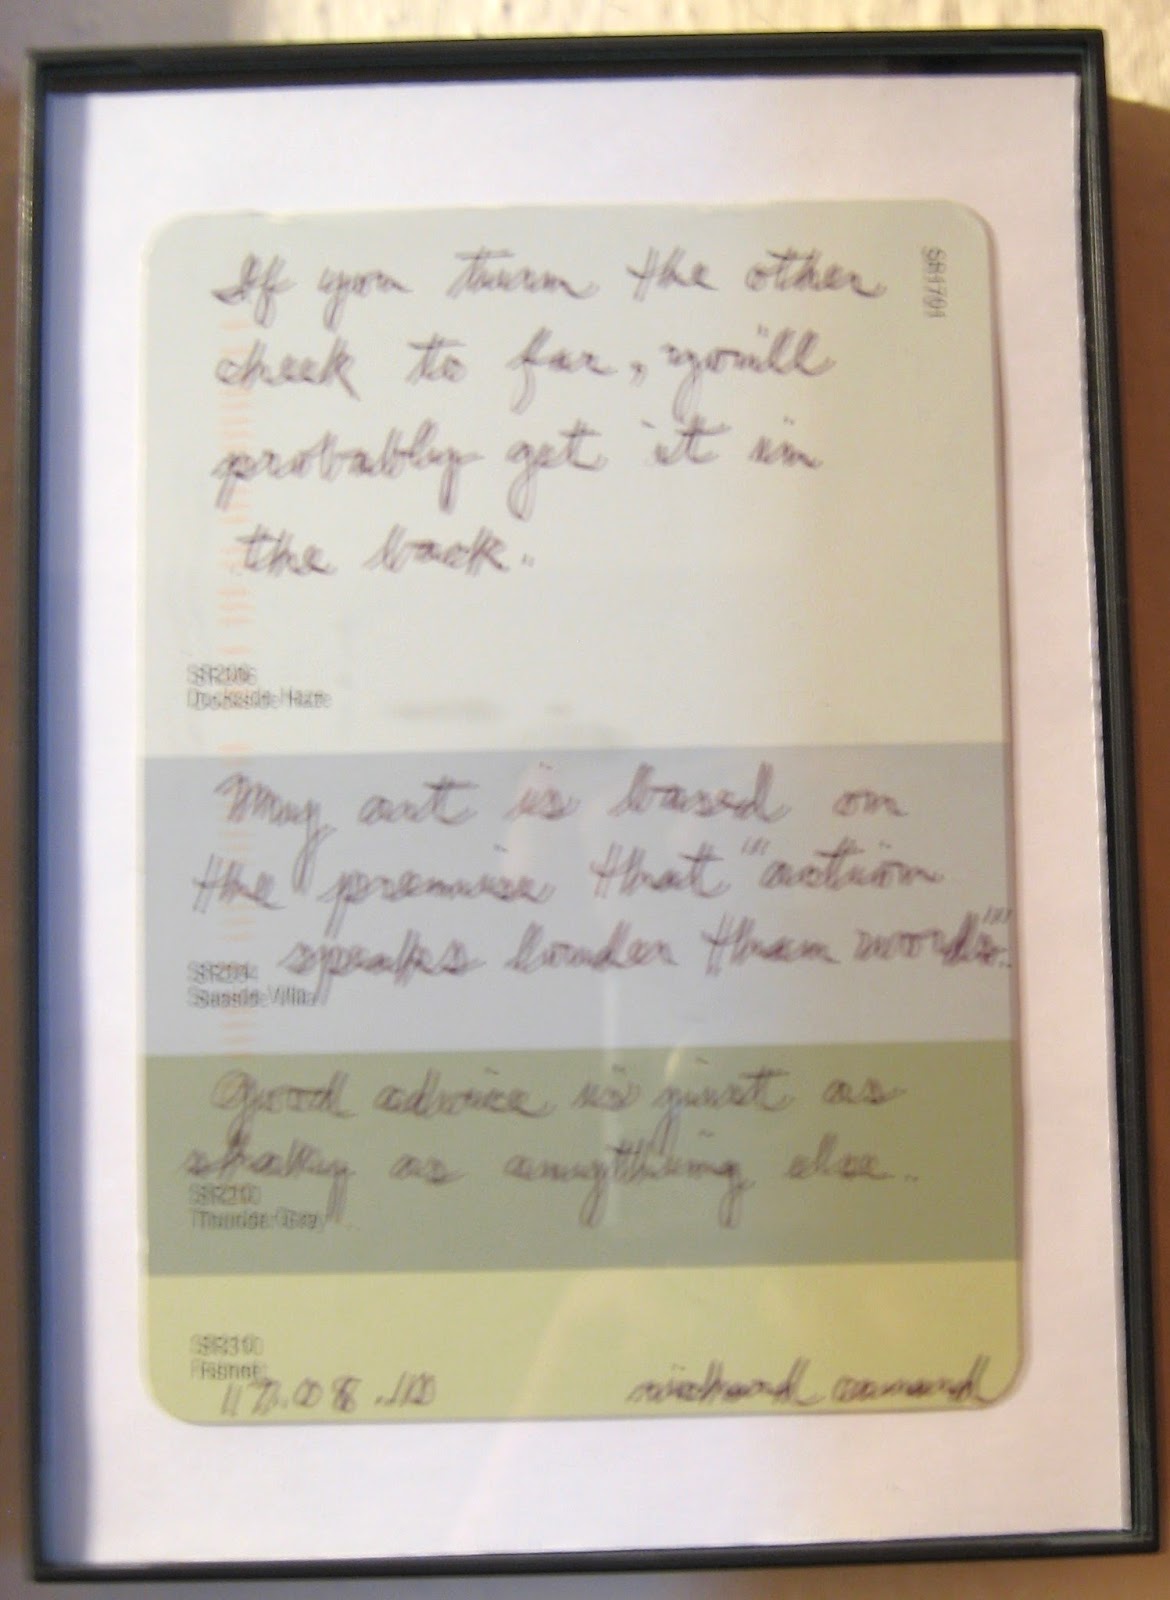 If you turn the other
SR1701
cheek to far, you'll
probably get it in
the back.
SR206
Dockside Haze
My art is based on
the premise that "action
speaks louder than words".
SR204
Seaside Villa
Good advice is just as
shaky as anything else.
Thunder Gray
SR310
richard